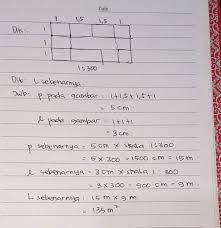 Date
1 1,5 1,5 1
Dik:
1
1
1
1:300
Dit: L sebenarnya
Jwb: p pada gambar = 1+1,5+1,5+1
= 5 cm
l pada gambar = 1+1+1
= 3 cm
p sebenarnya = 5 cm x skala 1:300
= 5 x 300 = 1500 cm = 15 m
l sebenarnya = 3 cm x skala 1:300
= 3 x 300 = 900 cm = 9 m
L sebenarnya : 15 m x 9 m
= 135 m²